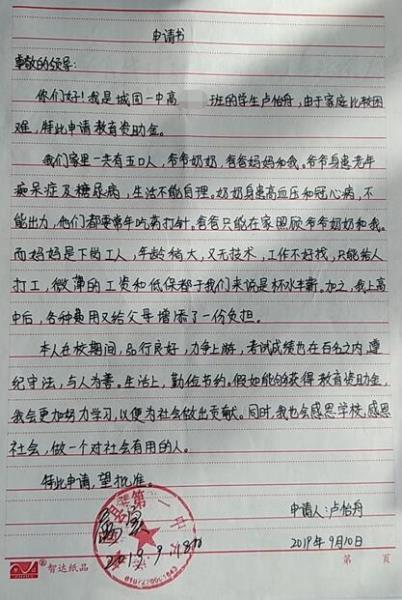 申请书
尊敬的领导:
你们好!我是城固一中高 班的学生卢怡舟,由于家庭比较困
难,特此申请教育资助金。
我们家里一共有五口人,爷爷奶奶,爸爸妈妈和我。爷爷身患老年
痴呆症及糖尿病,生活不能自理。奶奶身患高血压和冠心病,不
能出力,他们都要常年吃药打针。爸爸只能在家照顾爷爷奶奶和我。
而妈妈是下岗工人,年龄稍大,又无技术,工作不好找,只能给人
打工,微薄的工资和低保都于我们来说是杯水车薪。加之,我上高
中后,各种费用又给父母增添了一份负担。
本人在校期间,品行良好,力争上游,考试成绩也在百名之内,遵
纪守法,与人为善。生活上,勤俭节约。假如能够获得教育资助金,
我会更加努力学习,以便为社会做出贡献。同时,我也会感恩学校,感恩
社会,做一个对社会有用的人。
特此申请,望批准。
申请人:卢怡舟
2019年9月10日
第一中
2019.9
智达纸品
第 页